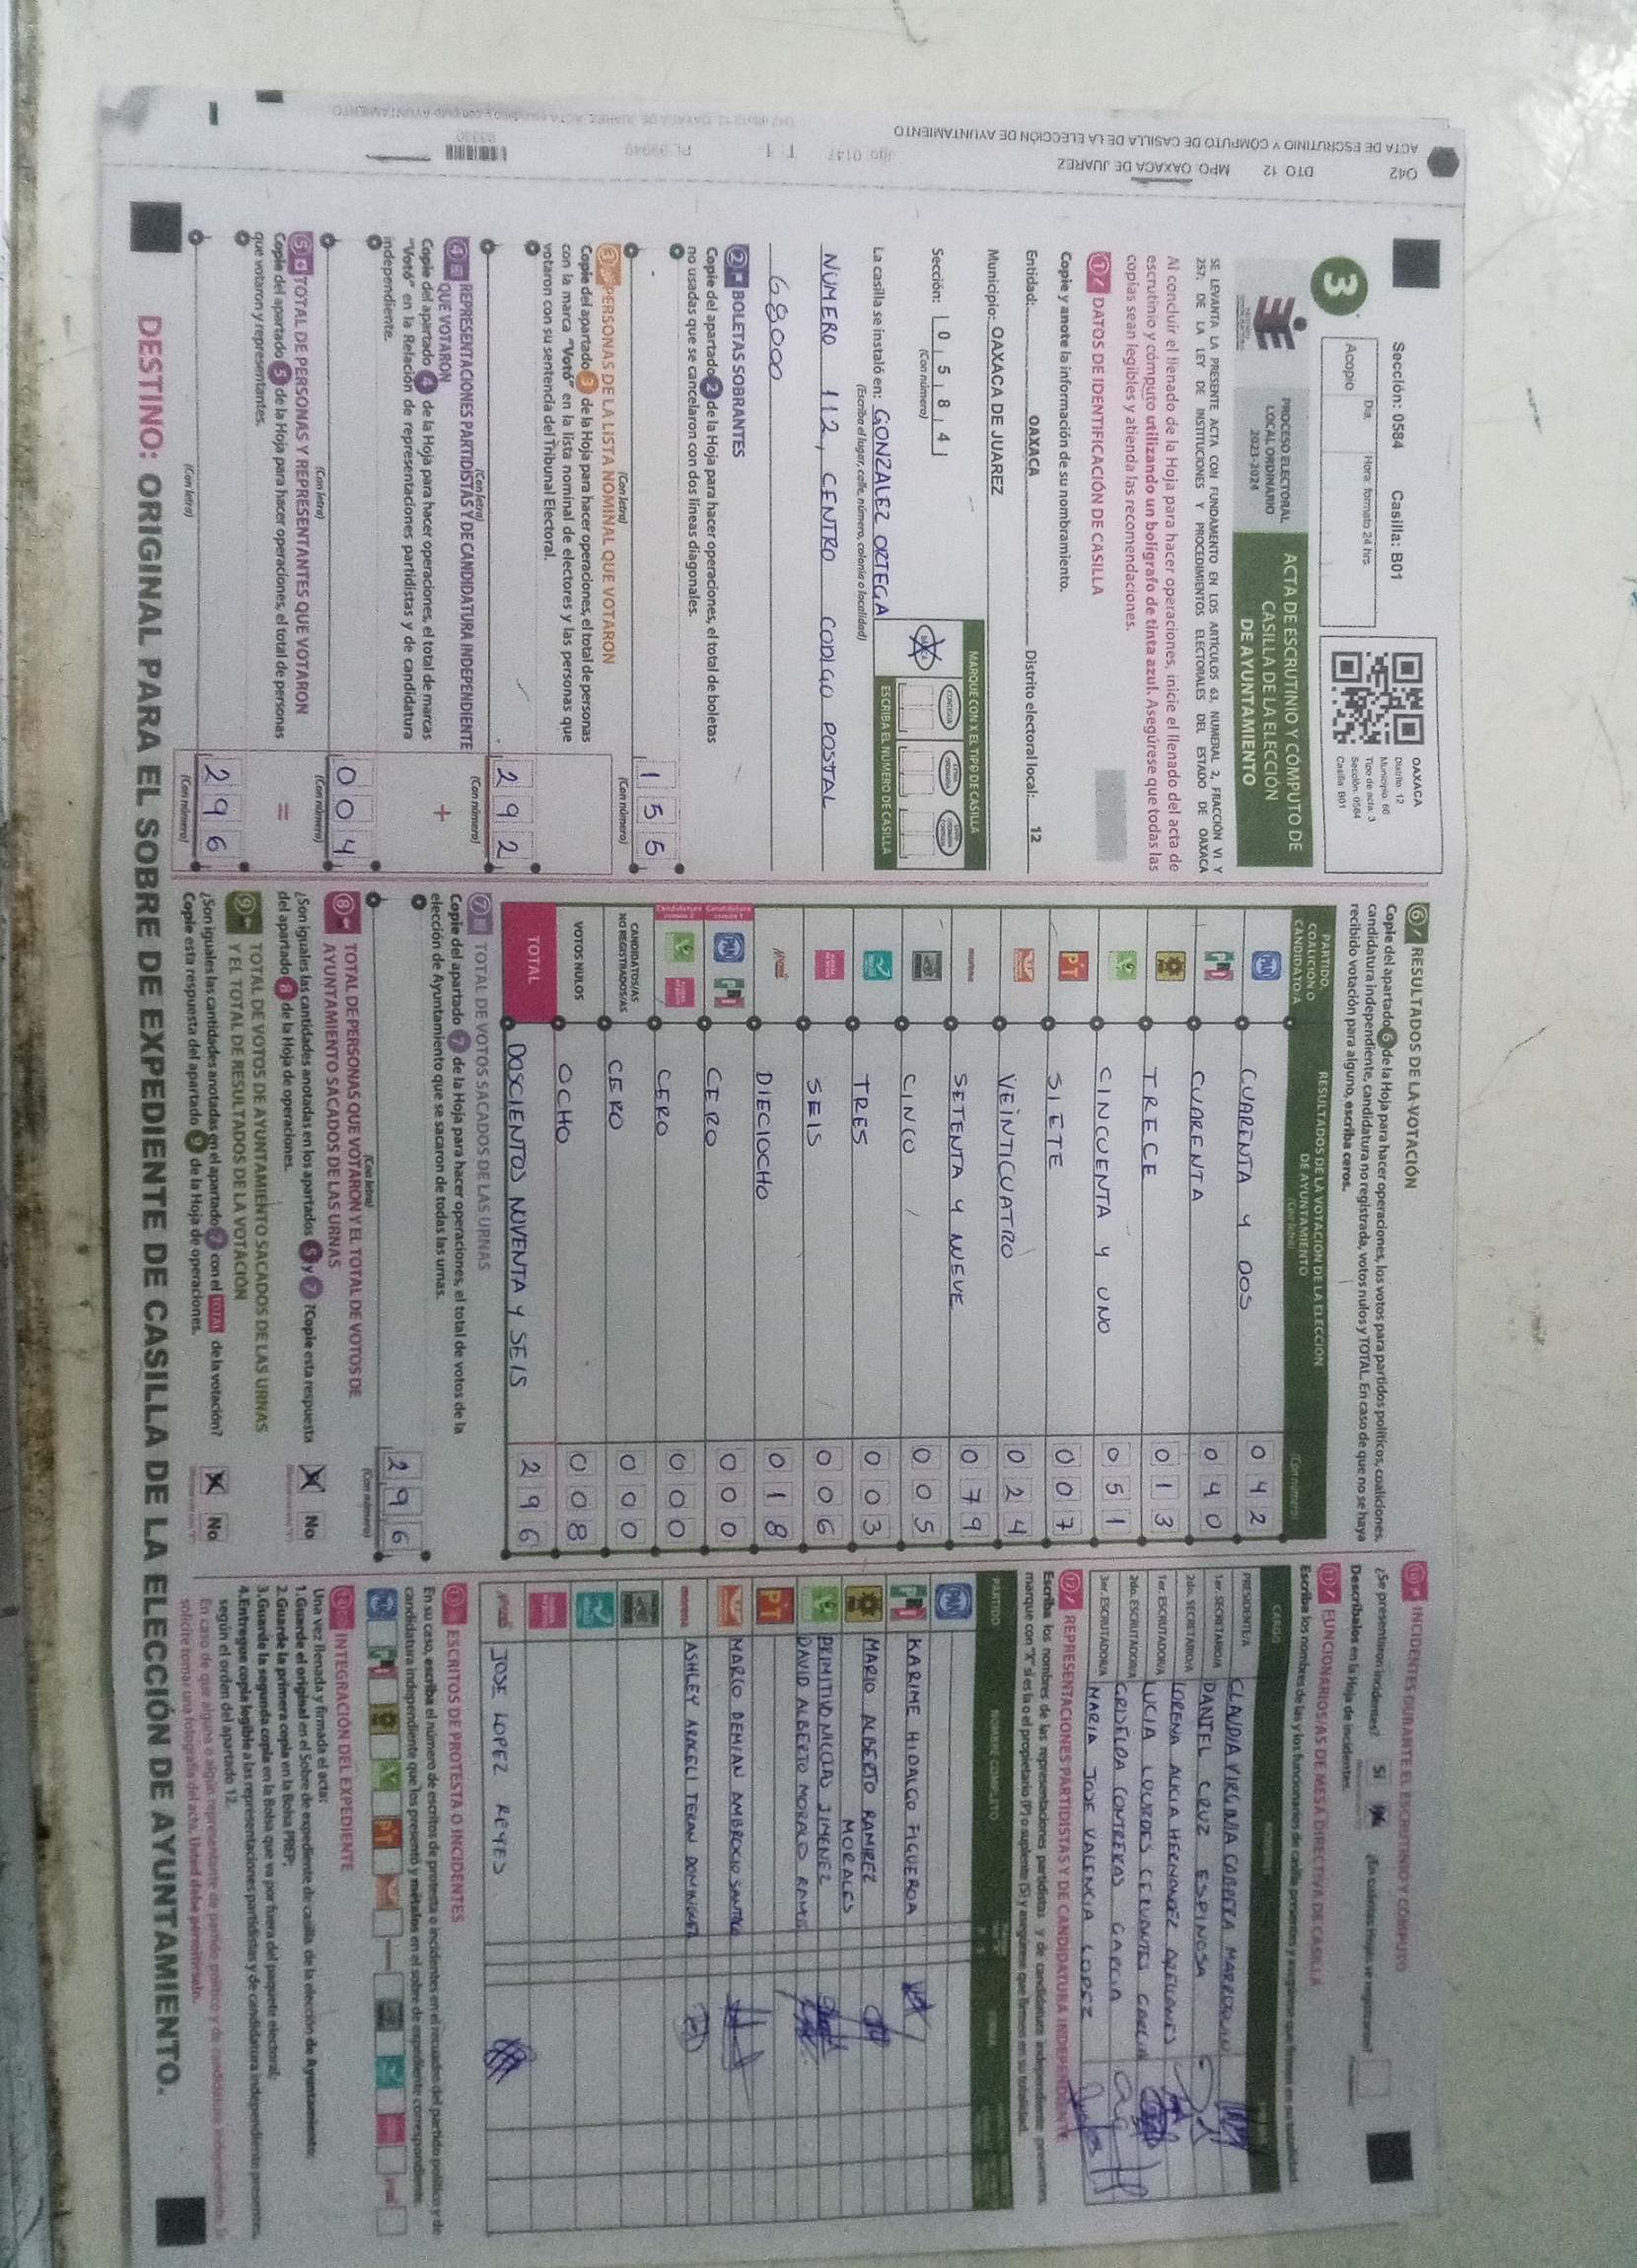 042 DTO 12 MPO. OAXACA DE JUAREZ
ACTA DE ESCRUTINIO Y CÓMPUTO DE CASILLA DE LA ELECCIÓN DE AYUNTAMIENTO
Sección: 0584 Casilla: B01
3
Día: Hora: formato 24 hrs.
Acopio
OAXACA
Distrito: 12
Municipio: 66
Tipo de acta: 3
Sección: 0584
Casilla: B01
PROCESO ELECTORAL
LOCAL ORDINARIO
2023-2024
ACTA DE ESCRUTINIO Y CÓMPUTO DE
CASILLA DE LA ELECCIÓN
DE AYUNTAMIENTO
SE LEVANTA LA PRESENTE ACTA CON FUNDAMENTO EN LOS ARTÍCULOS 63, NUMERAL 2, FRACCIÓN VI Y
257; DE LA LEY DE INSTITUCIONES Y PROCEDIMIENTOS ELECTORALES DEL ESTADO DE OAXACA
Al concluir el llenado de la Hoja para hacer operaciones, inicie el llenado del acta de
escrutinio y cómputo utilizando un bolígrafo de tinta azul. Asegúrese que todas las
copias sean legibles y atienda las recomendaciones.
1 DATOS DE IDENTIFICACIÓN DE CASILLA
Copie y anote la información de su nombramiento.
Entidad: OAXACA Distrito electoral local: 12
Municipio: OAXACA DE JUAREZ
Sección: 0 5 8 4
(Con número)
MARQUE CON X EL TIPO DE CASILLA
ESCRIBA EL NÚMERO DE CASILLA
La casilla se instaló en: GONZALEZ ORTEGA
(Escriba el lugar, calle, número, colonia o localidad)
NUMERO 112, CENTRO CODIGO POSTAL
68000
2 BOLETAS SOBRANTES
Copie del apartado 2 de la Hoja para hacer operaciones, el total de boletas
no usadas que se cancelaron con dos líneas diagonales.
155
(Con letra) (Con número)
3 PERSONAS DE LA LISTA NOMINAL QUE VOTARON
Copie del apartado 3 de la Hoja para hacer operaciones, el total de personas
con la marca "Votó" en la lista nominal de electores y las personas que
votaron con su sentencia del Tribunal Electoral.
292
(Con letra) (Con número)
4 REPRESENTACIONES PARTIDISTAS Y DE CANDIDATURA INDEPENDIENTE
QUE VOTARON +
Copie del apartado 4 de la Hoja para hacer operaciones, el total de marcas
"Votó" en la Relación de representaciones partidistas y de candidatura
independiente.
004
(Con letra) (Con número)
5 TOTAL DE PERSONAS Y REPRESENTANTES QUE VOTARON =
Copie del apartado 5 de la Hoja para hacer operaciones, el total de personas
que votaron y representantes.
296
(Con letra) (Con número)
6 RESULTADOS DE LA VOTACIÓN
Copie del apartado 6 de la Hoja para hacer operaciones, los votos para partidos políticos, coaliciones,
candidatura independiente, candidatura no registrada, votos nulos y TOTAL. En caso de que no se haya
recibido votación para alguno, escriba ceros.
PARTIDO, COALICIÓN O CANDIDATO/A
RESULTADOS DE LA VOTACIÓN DE LA ELECCIÓN DE AYUNTAMIENTO
(Con letra) (Con número)
PAN CUARENTA Y DOS 042
PRI CUARENTA 040
TRECE 013
CINCUENTA Y UNO 051
PT SIETE 007
VEINTICUATRO 024
morena SETENTA Y NUEVE 079
CINCO 005
TRES 003
SEIS 006
DIECIOCHO 018
PAN PRI CERO 000
CERO 000
CANDIDATOS/AS NO REGISTRADOS/AS CERO 000
VOTOS NULOS OCHO 008
TOTAL DOSCIENTOS NOVENTA Y SEIS 296
7 TOTAL DE VOTOS SACADOS DE LAS URNAS
Copie del apartado 7 de la Hoja para hacer operaciones, el total de votos de la
elección de Ayuntamiento que se sacaron de todas las urnas.
296
(Con letra) (Con número)
8 TOTAL DE PERSONAS QUE VOTARON Y EL TOTAL DE VOTOS DE
AYUNTAMIENTO SACADOS DE LAS URNAS
¿Son iguales las cantidades anotadas en los apartados 5 y 7? Copie esta respuesta
del apartado 8 de la Hoja de operaciones.
No
9 TOTAL DE VOTOS DE AYUNTAMIENTO SACADOS DE LAS URNAS
Y EL TOTAL DE RESULTADOS DE LA VOTACIÓN
¿Son iguales las cantidades anotadas en el apartado 7 con el TOTAL de la votación?
Copie esta respuesta del apartado 9 de la Hoja de operaciones.
No
10 INCIDENTES DURANTE EL ESCRUTINIO Y CÓMPUTO
¿Se presentaron incidentes? Sí ¿En cuántas Hojas se registraron?
Descríbalos en la Hoja de incidentes.
11 FUNCIONARIOS/AS DE MESA DIRECTIVA DE CASILLA
Escriba los nombres de las y los funcionarios de casilla presentes y asegúrese que firmen en su totalidad.
CARGO NOMBRE
PRESIDENTE/A CLAUDIA VIRGINIA CABRERA
1er. SECRETARIO/A DANIEL CRUZ ESPINOSA
2do. SECRETARIO/A LORENA ALICIA HERNANDEZ
1er. ESCRUTADOR/A LUCIA LOURDES CERVANTES GARCIA
2do. ESCRUTADOR/A GRISELDA CONTRERAS GARCIA
3er. ESCRUTADOR/A MARIA JOSE VALENCIA LOPEZ
12 REPRESENTACIONES PARTIDISTAS Y DE CANDIDATURA INDEPENDIENTE
Escriba los nombres de las representaciones partidistas y de candidatura independiente presentes,
marque con "X" si es la o el propietario (P) o suplente (S) y asegúrese que firmen en su totalidad.
PARTIDO NOMBRE COMPLETO
PAN
PRI KARIME HIDALGO FIGUEROA
MARIO ALBERTO RAMIREZ
MORALES
PRIMITIVO NICOLAS JIMENEZ
DAVID ALBERTO MORALO RAMOS
PT
MARIO DEMIAN AMBROCIO SANTIAGO
morena ASHLEY ARACELI TERAN DOMINGUEZ
JOSE LOPEZ REYES
13 ESCRITOS DE PROTESTA O INCIDENTES
En su caso, escriba el número de escritos de protesta o incidentes en el recuadro del partido político y de
candidatura independiente que los presentó y métalos en el sobre de expediente correspondiente.
14 INTEGRACIÓN DEL EXPEDIENTE
Una vez llenada y firmada el acta:
1.Guarde el original en el Sobre de expediente de casilla de la elección de Ayuntamiento;
2.Guarde la primera copia en la Bolsa PREP;
3.Guarde la segunda copia en la Bolsa que va por fuera del paquete electoral;
4.Entregue copia legible a las representaciones partidistas y de candidatura independiente presentes,
según el orden del apartado 12.
En caso de que alguna o algún representante de partido político y de candidatura independiente, le
solicite tomar una fotografía del acta, Usted debe permitírselo.
DESTINO: ORIGINAL PARA EL SOBRE DE EXPEDIENTE DE CASILLA DE LA ELECCIÓN DE AYUNTAMIENTO.